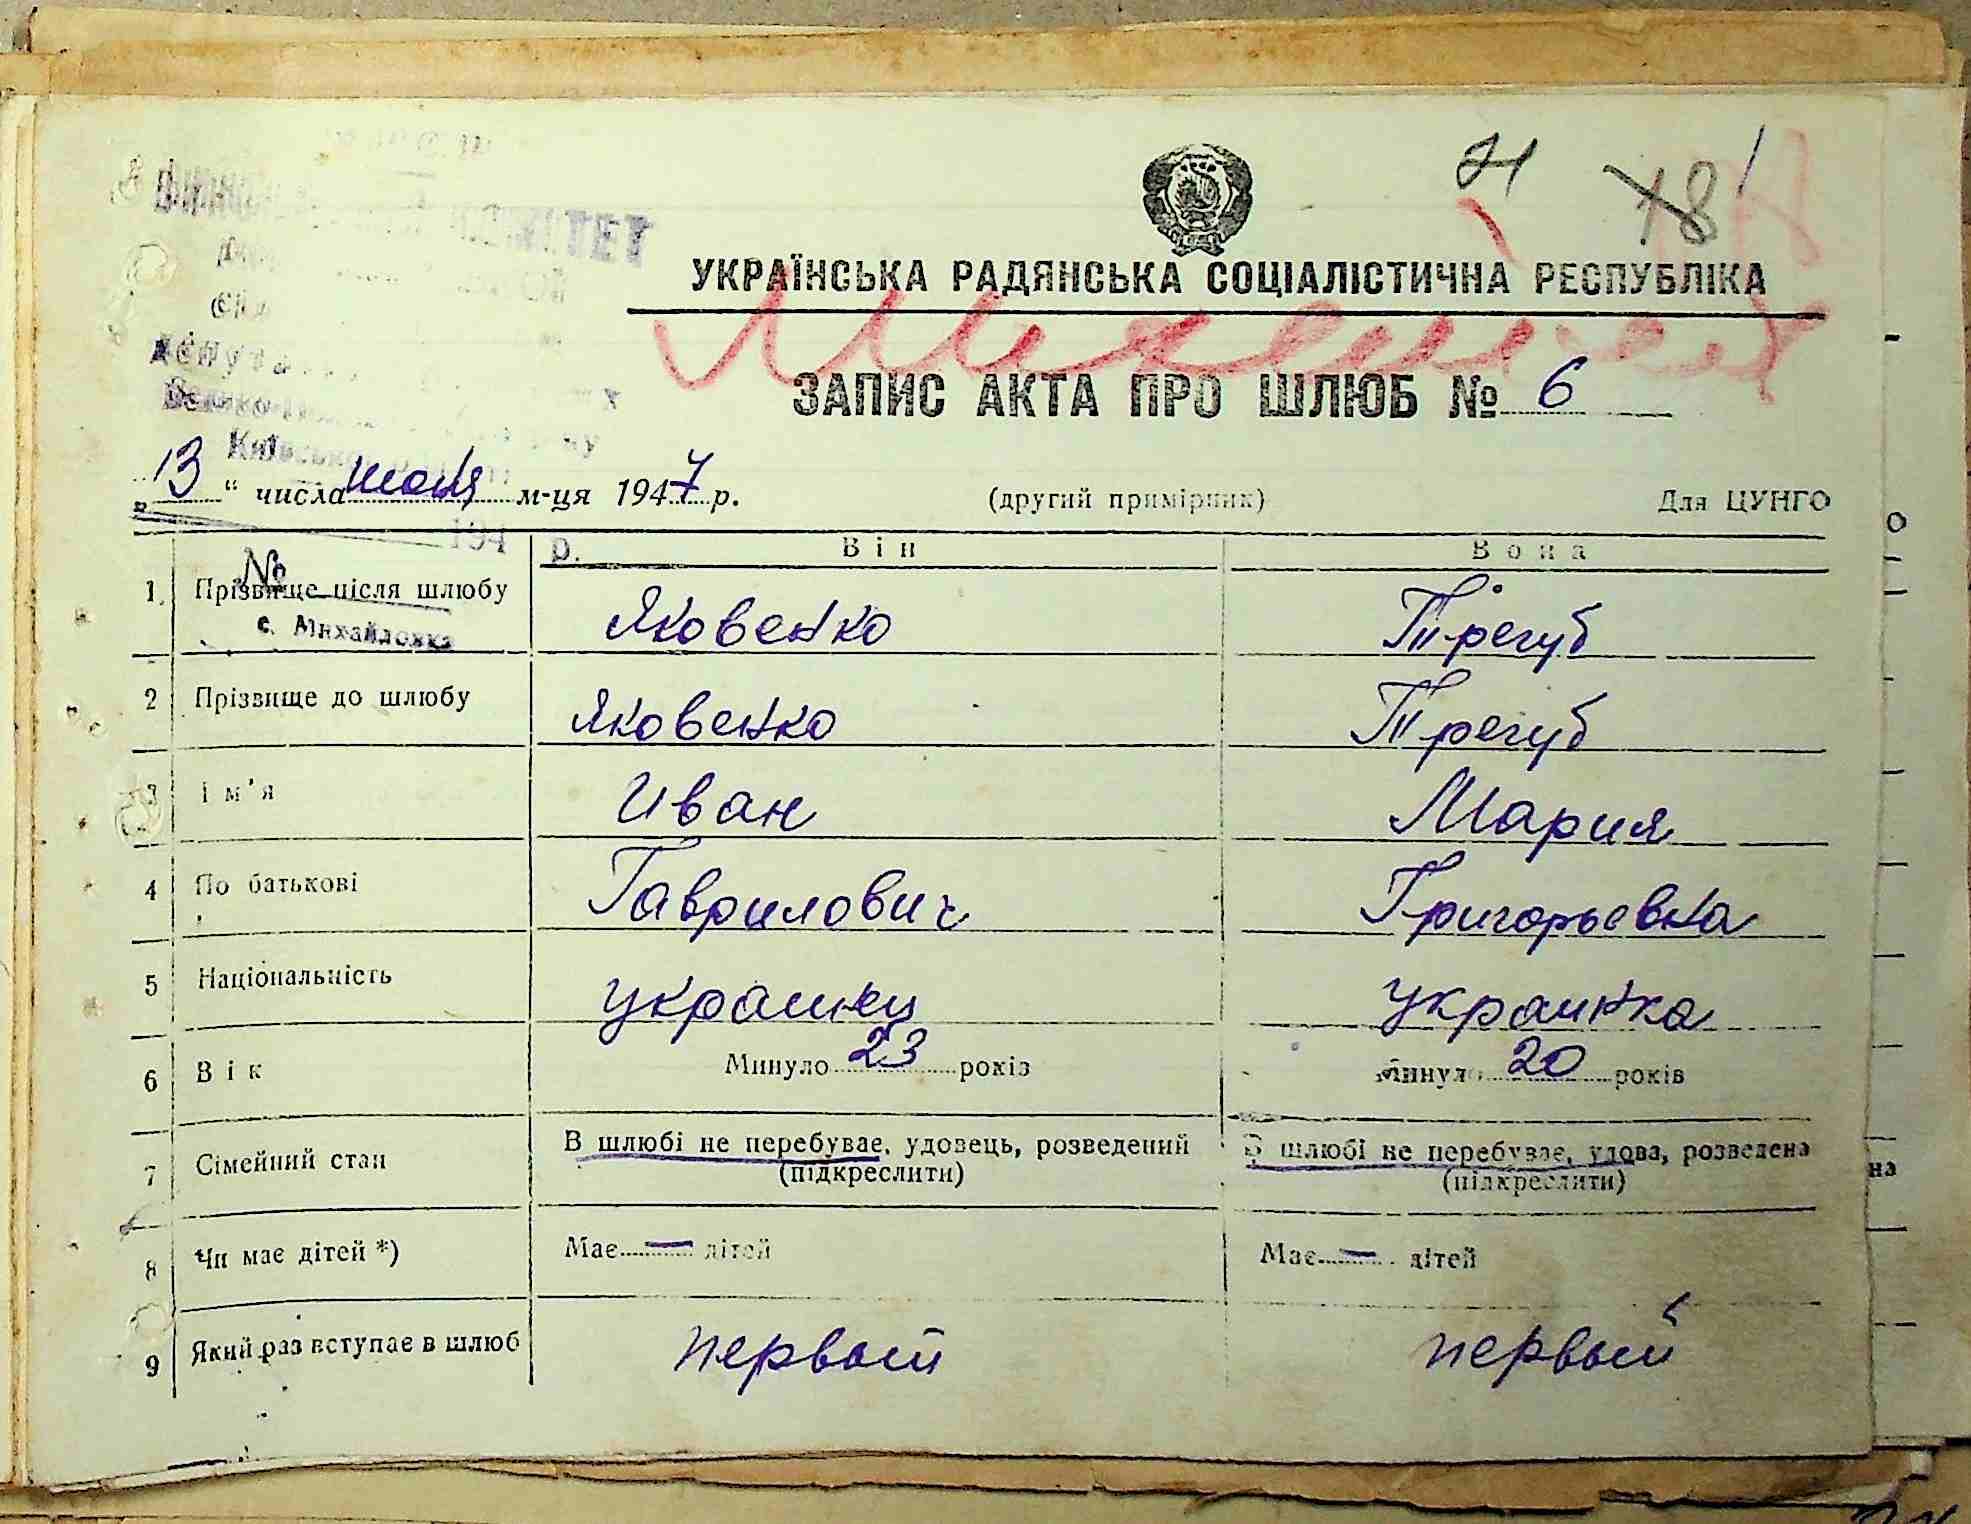 КОМІТЕТ
УКРАЇНСЬКА РАДЯНСЬКА СОЦІАЛІСТИЧНА РЕСПУБЛІКА
ЗАПИС АКТА ПРО ШЛЮБ № 6
„13“ числа июня м-ця 1947 р.
(другий примірник)
Для ЦУНГО
194 р.
Він Вона
№
1. Прізвище після шлюбу Яковенко Трегуб
с. Михайловка
2 Прізвище до шлюбу Яковенко Трегуб
3 Ім'я Иван Мария
4 По батькові Гаврилович Григорьевна
5 Національність украинец украинка
6 Вік Минуло 23 років Минуло 20 років
7 Сімейний стан В шлюбі не перебуває, удовець, розведений В шлюбі не перебуває, удова, розведена
(підкреслити) (підкреслити)
8 Чи має дітей *) Має — дітей Має — дітей
9 Який раз вступає в шлюб первый первый